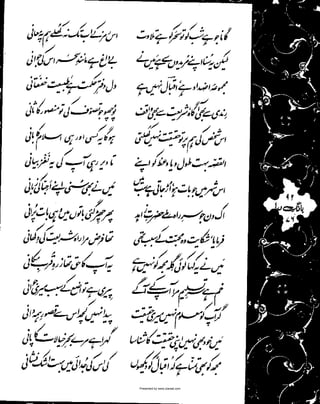 گانا جو ہے شب کو تو سحر کو ہے تلاوت اس رمز کے اب تک نہ کھلے ہم پہ معانی
لیکن یہ سنا اپنے مریدوں سے ہے میں نے بے داغ ہے مانندِ سحر اس کی جوانی
مجموعۂ اضداد ہے، اقبال نہیں ہے دل دفترِ حکمت ہے، طبیعت خفقانی
رندی سے بھی آگاہ، شریعت سے بھی واقف پوچھو جو تصوف کی تو منصور کا ثانی
اس شخص کی ہم پر تو حقیقت نہیں کھلتی ہوگا یہ کسی اور ہی اسلام کا بانی
القصہ بہت طول دیا وعظ کو اپنے تا دیر رہی آپ کی یہ نغز بیانی
اس شہر میں جو بات ہو، اڑ جاتی ہے سب میں میں نے بھی سنی اپنے احبّا کی زبانی
اک دن جو سرِ راہ ملے حضرتِ زاہد پھر چھڑ گئی باتوں میں وہی بات پرانی
فرمایا، شکایت وہ محبت کے سبب تھی تھا فرض مرا راہ شریعت کی دکھانی
میں نے یہ کہا کوئی گلہ مجھ کو نہیں ہے یہ آپ کا حق تھا ز رہِ قربِ مکانی
خم ہے سرِ تسلیم مرا آپ کے آگے پیری ہے تواضع کے سبب میری جوانی
گر آپ کو معلوم نہیں میری حقیقت پیدا نہیں کچھ اس سے قصورِ ہمہ دانی
میں خود بھی نہیں اپنی حقیقت کا شناسا گہرا ہے مرے بحرِ خیالات کا پانی
مجھ کو بھی تمنا ہے کہ اقبال کو دیکھوں کی اس کی جدائی میں بہت اشک فشانی
بانگِ درا